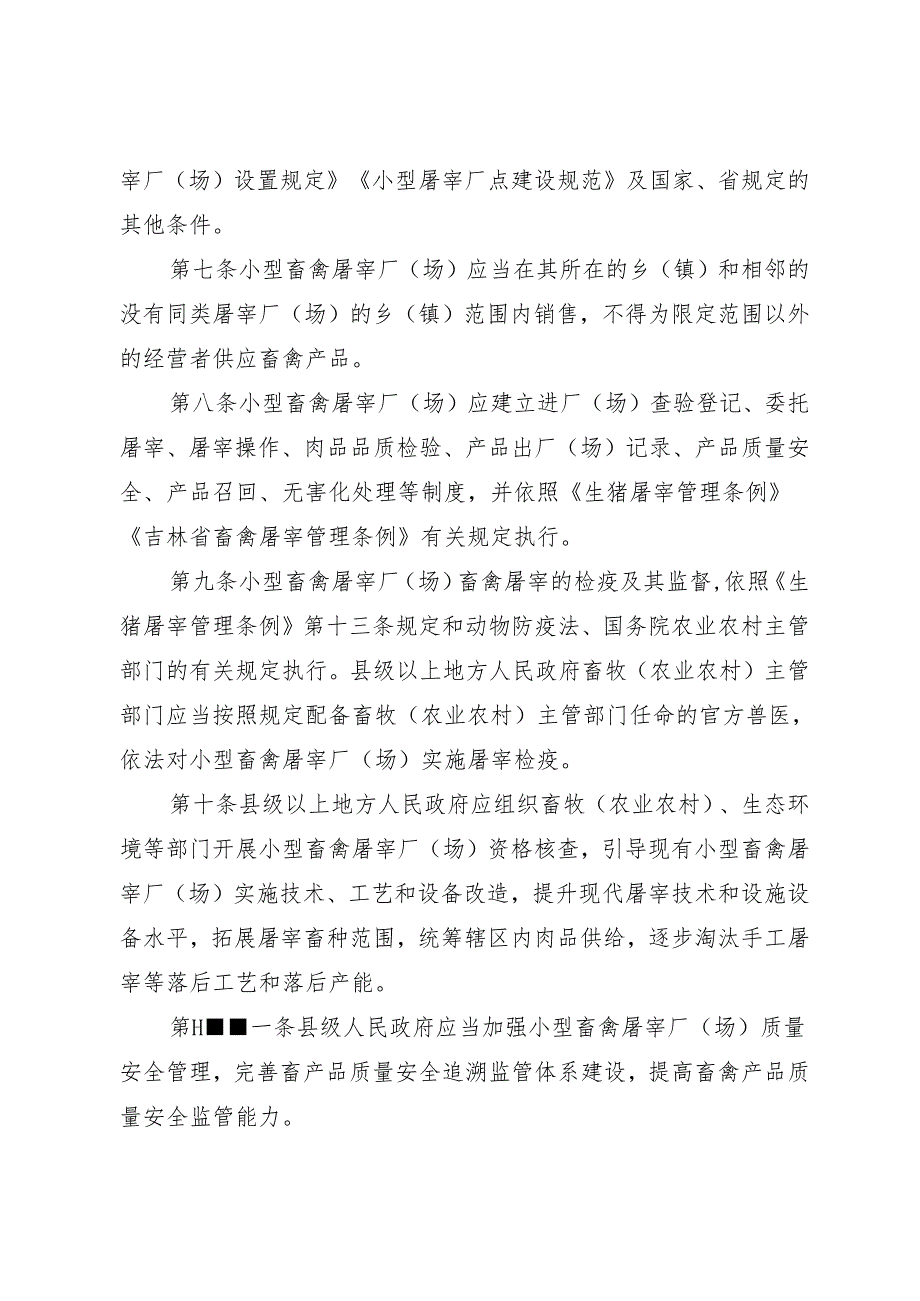 宰厂（场）设置规定》《小型屠宰厂点建设规范》及国家、省规定的
其他条件。
第七条小型畜禽屠宰厂（场）应当在其所在的乡（镇）和相邻的
没有同类屠宰厂（场）的乡（镇）范围内销售，不得为限定范围以外
的经营者供应畜禽产品。
第八条小型畜禽屠宰厂（场）应建立进厂（场）查验登记、委托
屠宰、屠宰操作、肉品品质检验、产品出厂（场）记录、产品质量安
全、产品召回、无害化处理等制度，并依照《生猪屠宰管理条例》
《吉林省畜禽屠宰管理条例》有关规定执行。
第九条小型畜禽屠宰厂（场）畜禽屠宰的检疫及其监督,依照《生
猪屠宰管理条例》第十三条规定和动物防疫法、国务院农业农村主管
部门的有关规定执行。县级以上地方人民政府畜牧（农业农村）主管
部门应当按照规定配备畜牧（农业农村）主管部门任命的官方兽医，
依法对小型畜禽屠宰厂（场）实施屠宰检疫。
第十条县级以上地方人民政府应组织畜牧（农业农村）、生态环
境等部门开展小型畜禽屠宰厂（场）资格核查，引导现有小型畜禽屠
宰厂（场）实施技术、工艺和设备改造，提升现代屠宰技术和设施设
备水平，拓展屠宰畜种范围，统筹辖区内肉品供给，逐步淘汰手工屠
宰等落后工艺和落后产能。
第H■■一条县级人民政府应当加强小型畜禽屠宰厂（场）质量
安全管理，完善畜产品质量安全追溯监管体系建设，提高畜禽产品质
量安全监管能力。